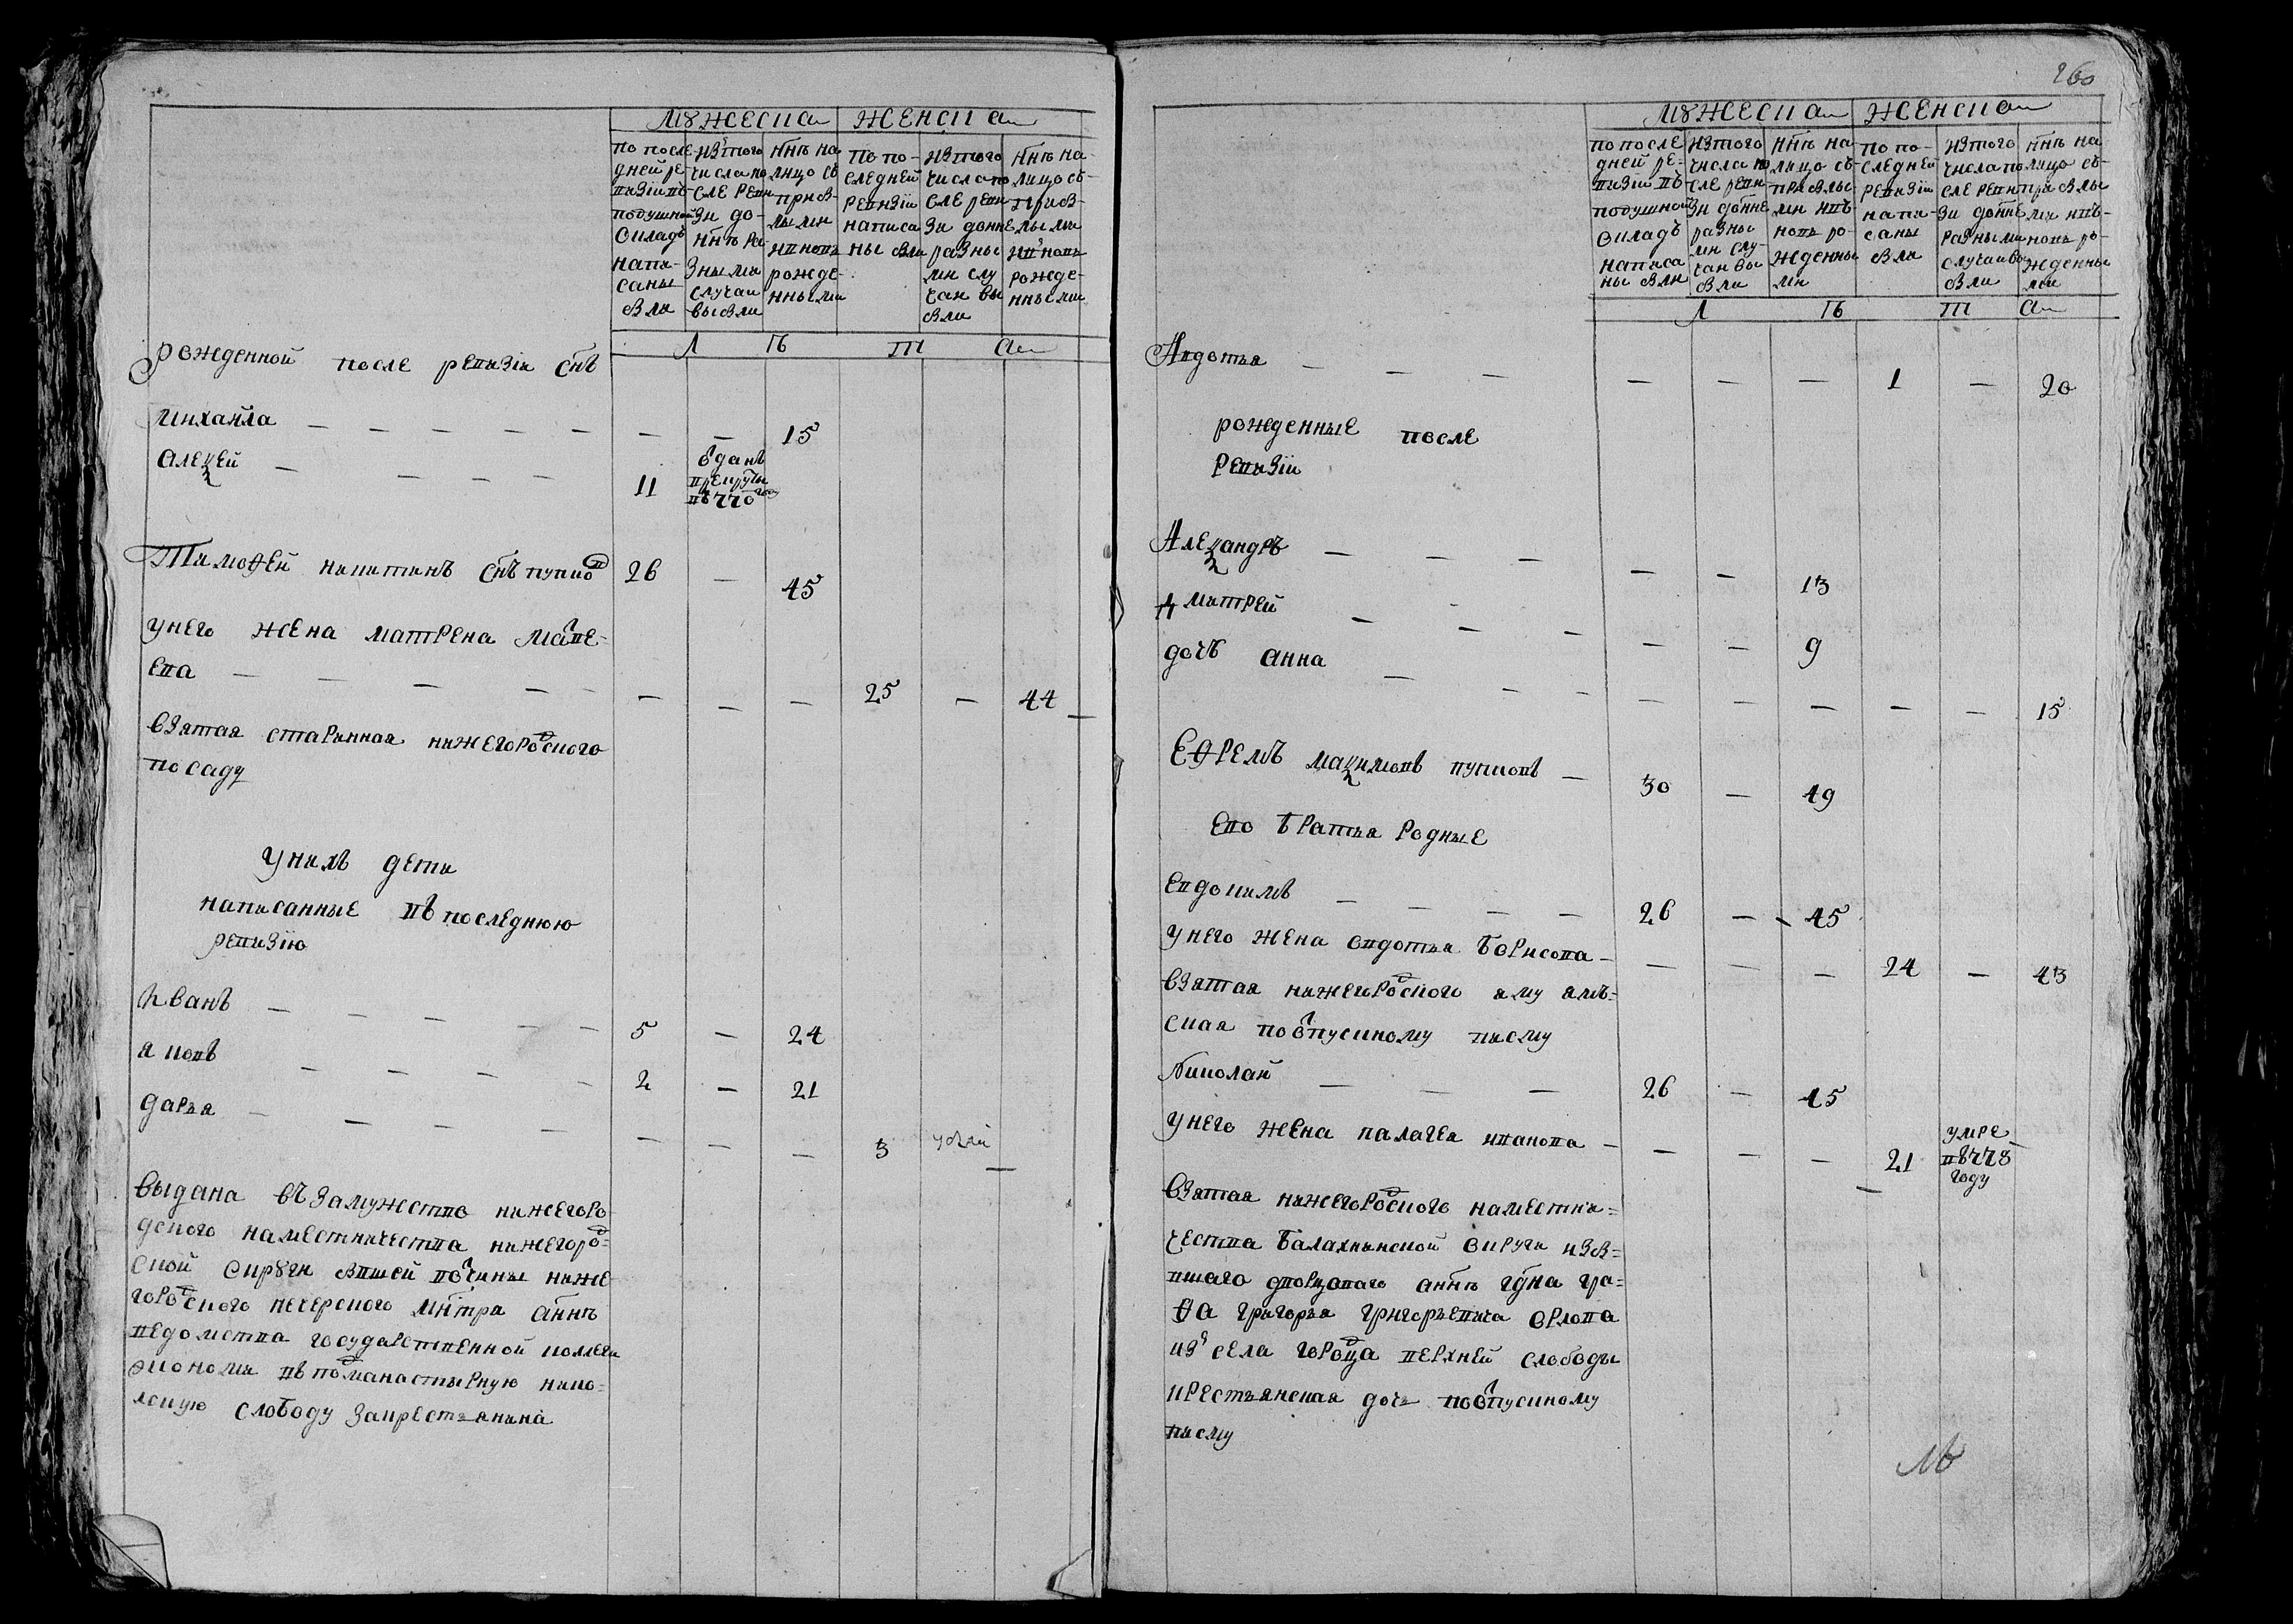 мȣжеска
женска
по после-
дней ре-
визіи въ
подушной
окладъ
напи-
саны
были
изъ того
числа по
сле реви
зи до-
ннѣ ра-
зными
случаи
выбыли
ннѣ на
лицо съ
прибы-
лыми
и вновь
рожде-
нными
по по-
следней
ревизіи
написа
ны были
изъ того
числа по
сле реви
зи до ннѣ
разны
ми слу
чаи вы
были
ннѣ на-
лицо съ
прибы-
лыми
и вновь
рожде-
нными
Л ѣ т а
рожденной после ревизіи снъ
михаила — — — — — — — — 15
алеѯей — — — — 11 ѿданъ
в рекруты
въ 770 году
Тимофей никитинъ снъ пупковъ 26 — 45
у него жена матрена матве-
ева — — — — — — — — 25 — 44
взятая старинная нижегородского
посаду
у нихъ дети
написанные въ последнюю
ревизію
Иванъ — — — — — 5 — 24
яковъ — — — — 2 — 21
дарья — — — — — — — 3
выдана въ замужство нижегоро-
дского наместничества нижегород-
ской округи бывшей вотчины ниже
городского печерского мнтра а ннѣ
ведомства государственной колеги
экономи въ подманастырную нико-
лскую слободу за крестьянина
260
мȣжеска
женска
по после
дней ре-
визіи въ
подушной
окладъ
написа
ны были
изъ того
числа по
сле реви-
зи до ннѣ
разны
ми слу-
чаи вы
были
ннѣ на
лицо съ
прибылы
ми и въ
новь ро-
жденны
ми
по по-
следней
ревизіи
напи-
саны
были
изъ того
числа по
сле реви
зи до ннѣ
разными
случаи вы
были
ннѣ на
лицо съ
прибылы
ми и въ-
новь ро-
жденны
ми
Л ѣ т а
Авдотья — — — — — — 1 — 20
рожденные после
ревизіи
Алеѯандръ — — — — — 13
дмитрей — — — — — 9
дочь анна — — — — — — — — 15
Ефремъ маѯимовъ пупковъ — 30 — 49
ево братья родные
евдокимъ — — — — 26 — 45
у него жена овдотья борисова — — — — 24 — 43
взятая нижегородского яму ямъ-
ская по отпускному писму
Николай — — — 26 — 45
у него жена палагея иванова — — — — 21 умре
въ 778
году
взятая нижегородского наместни-
чества балахнинской округи из бы-
вшаго дворцоваго а ннѣ гдна гра-
фа григорья григорьевича орлова
изъ села городца верхней слободы
крестьянская дочь по отпускному
писму